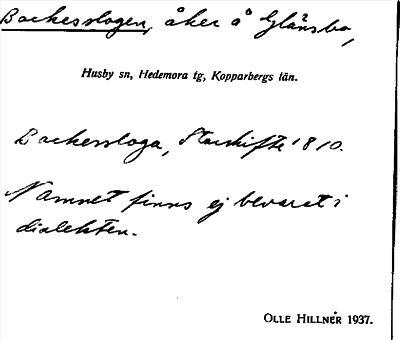 Backesslogen, åker å Glänsbo,
Husby sn, Hedemora tg, Kopparbergs län.
Backessloga, Storskifte 1810.
Namnet finns ej bevarat i
dialekten.
OLLE HILLNER 1937.